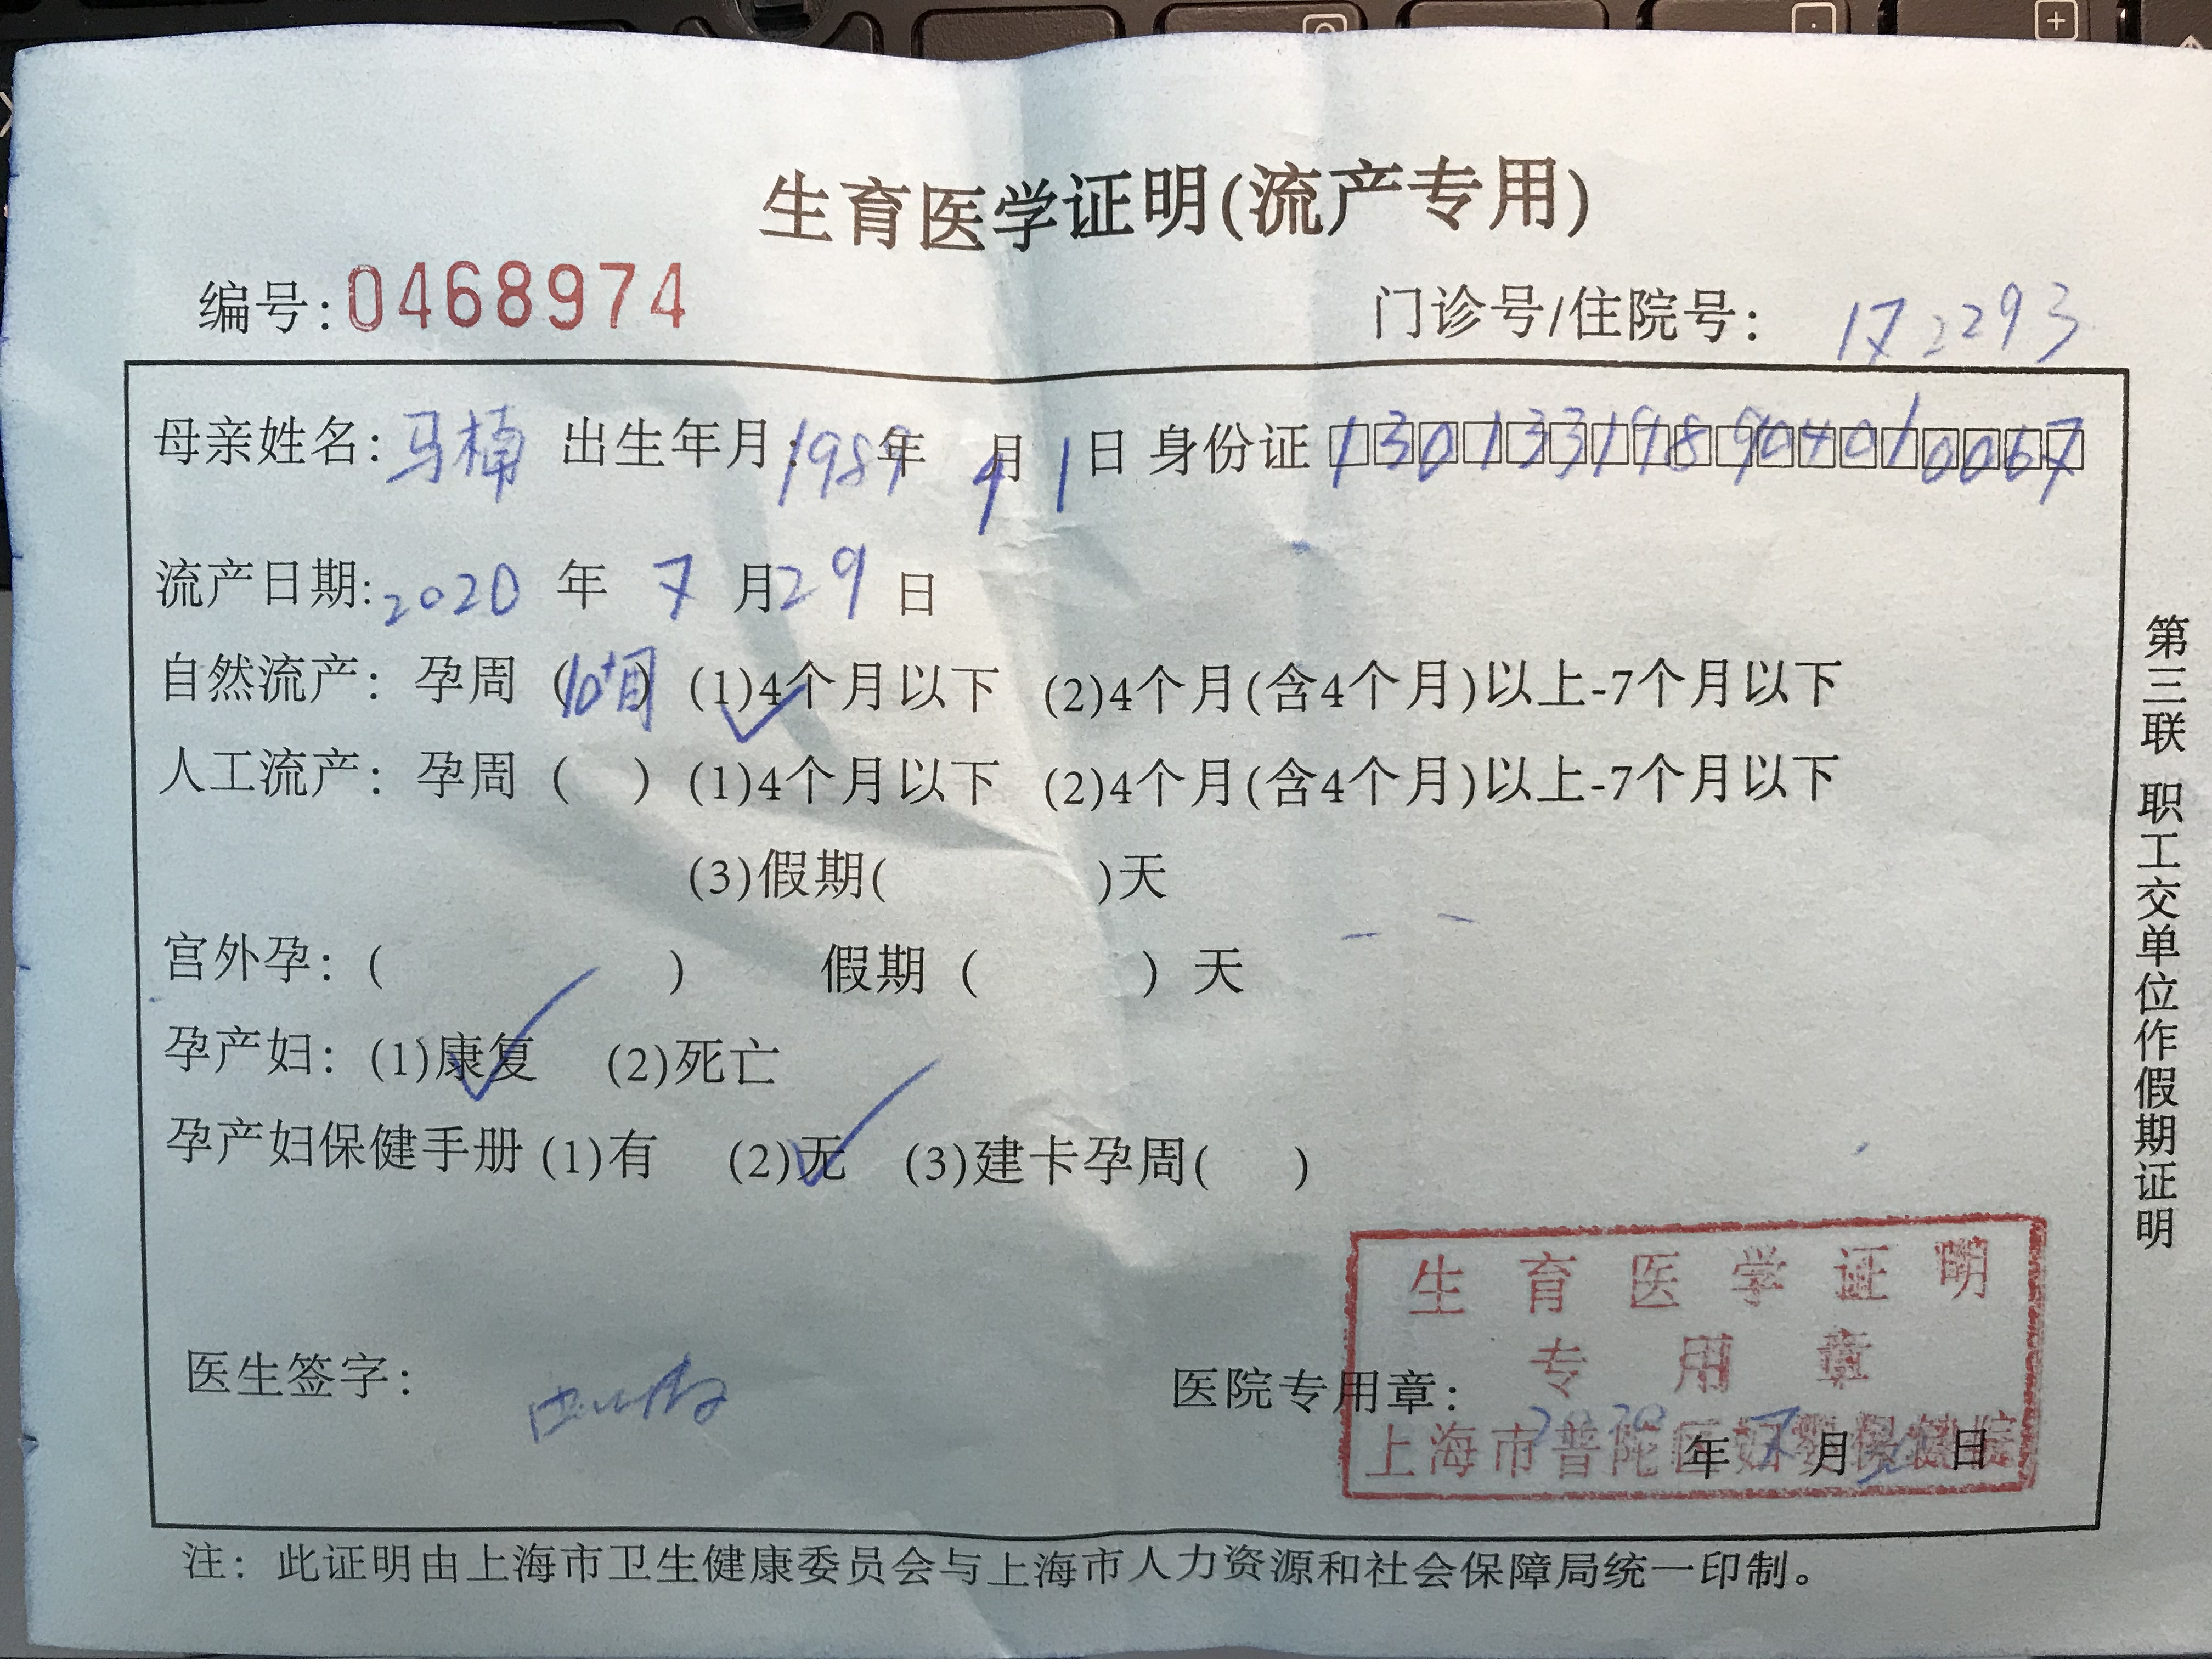 生育医学证明(流产专用)
编号:0468974 门诊号/住院号: 172293
母亲姓名:马楠 出生年月:1989年4月1日 身份证130133198904010067
流产日期:2020年7月29日
自然流产: 孕周(10⁺周) (1)4个月以下 (2)4个月(含4个月)以上-7个月以下
人工流产: 孕周( ) (1)4个月以下 (2)4个月(含4个月)以上-7个月以下
(3)假期( )天
宫外孕:( ) 假期( )天
孕产妇:(1)康复 (2)死亡
孕产妇保健手册(1)有 (2)无 (3)建卡孕周( )
生育医学证明
专用章
医生签字: 医院专用章:
上海市普陀区妇婴保健院
2020年7月 日
注: 此证明由上海市卫生健康委员会与上海市人力资源和社会保障局统一印制。
第三联 职工交单位作假期证明